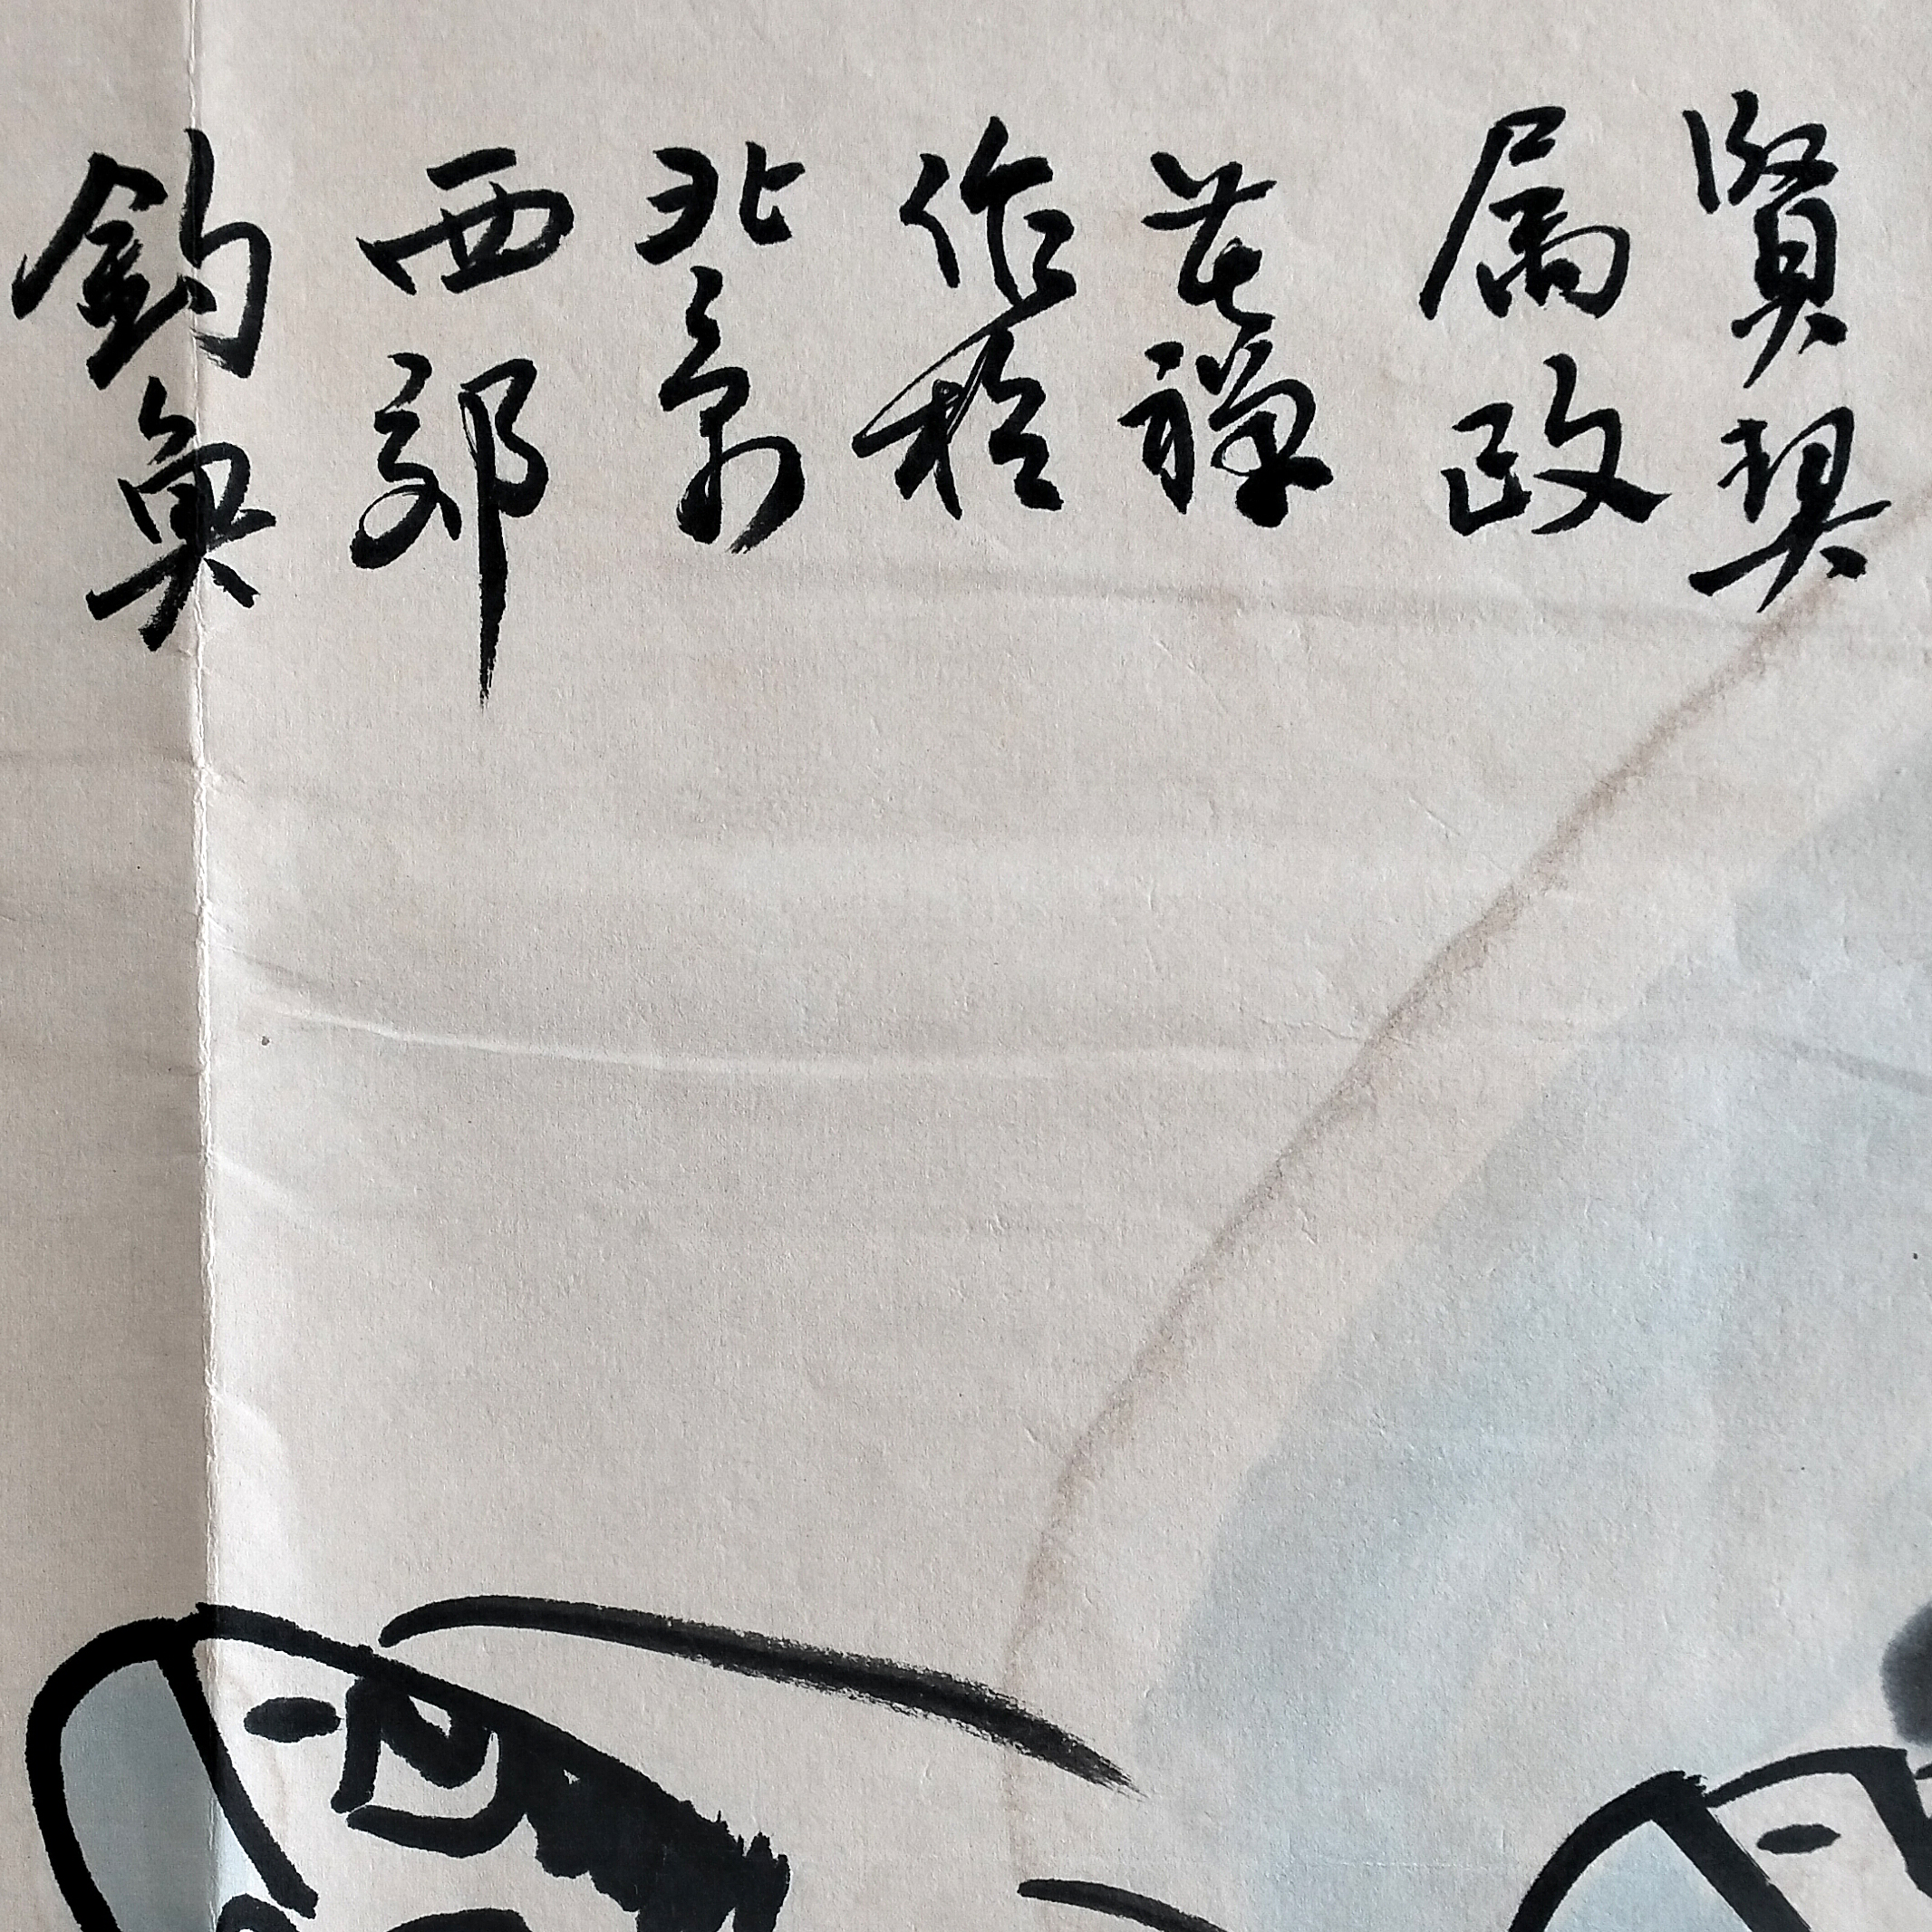 賢契
属政
苦禪
作於
北京
西郊
釣魚